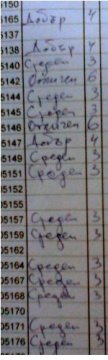 5150
5165 Добър 4
5137
5138 Добър 4
05140 Среден 3
05142 Отличен 6
05144 Среден 3
05145 Среден 3
05146 Отличен 6
05147 Добър 4
05149 Среден 3
05151 Среден 3
05152
05155
05157 Среден 3
05159 Среден 3
05162
05164 Среден 3
05167 Среден 3
05168 Среден 3
05170
05171 Среден 3
05176 Среден 3